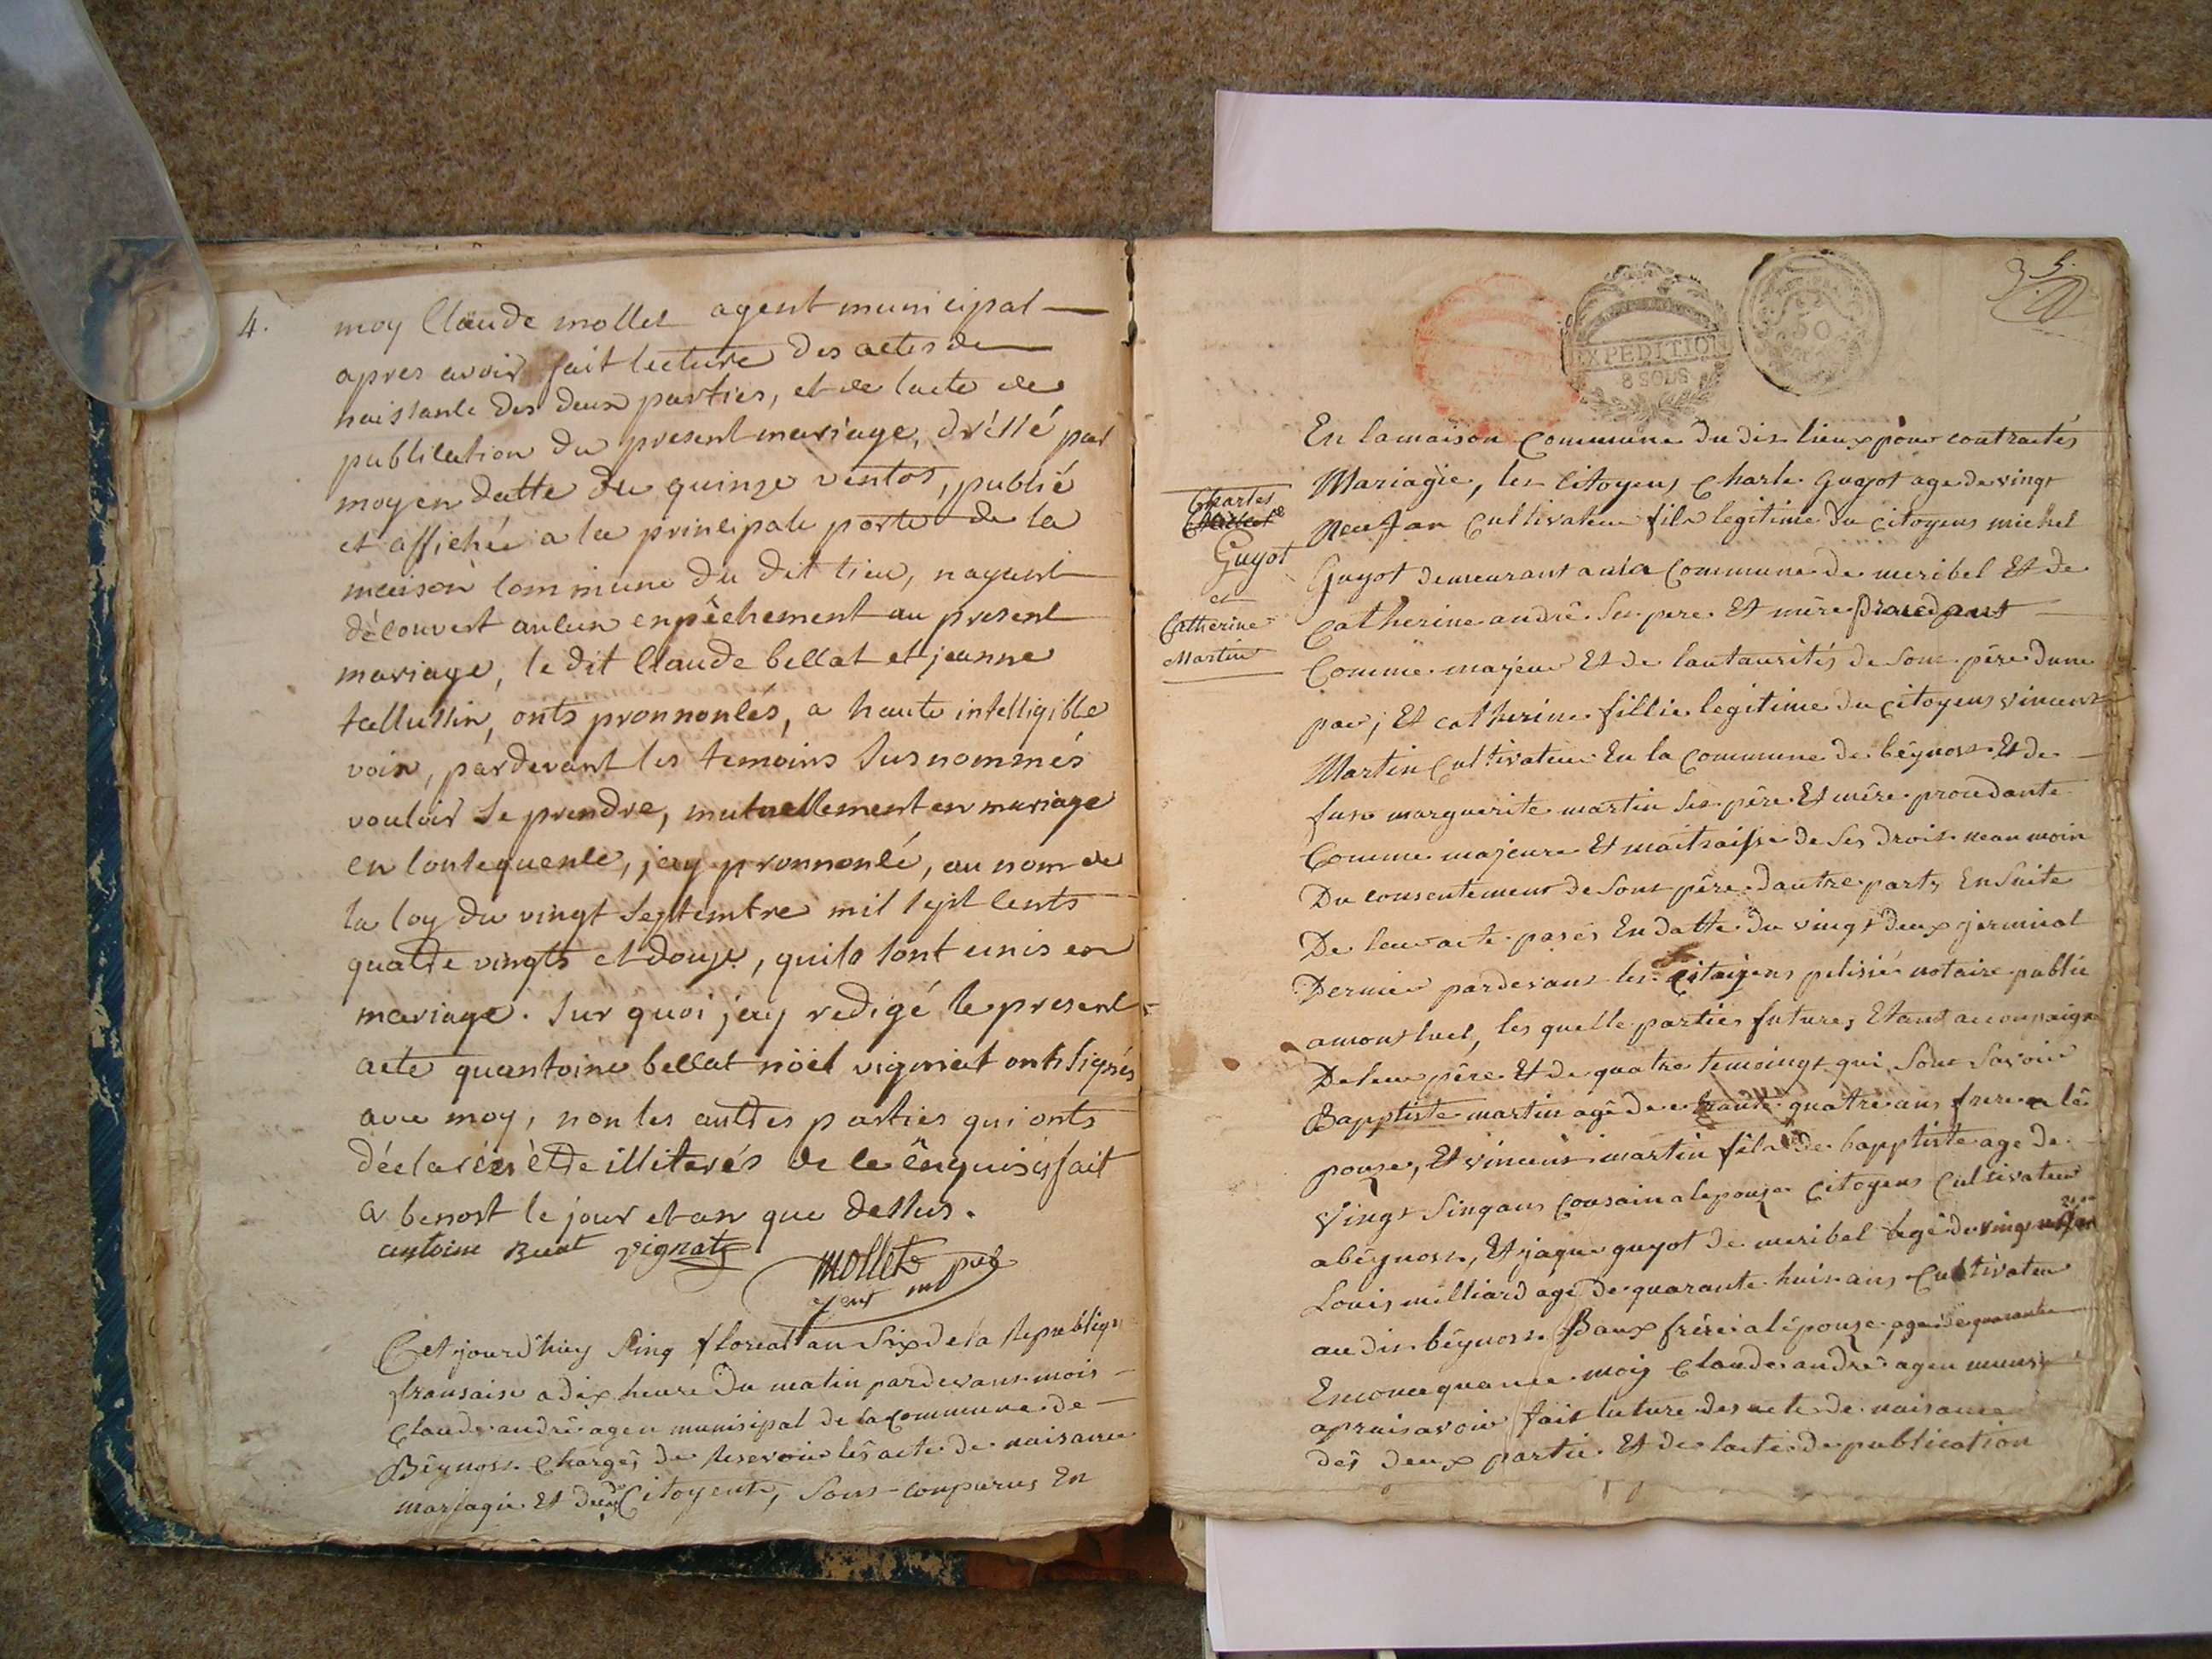 4.
moy Claude mollet agent municipal
apres avoir fait lecture des actes de
naissance des deux parties, et de lacte de
publication du present mariage, dréssé par
moy en datte du quinze ventos, publié
et affichée a la principale porte de la
maison commune du dit lieu, nayant
découvert aulcun enpêchement au present
mariage, le dit Claude bellat et jeanne
tallussin, onts pronnoncés, a haute intelligible
voix, pardevant les temoins susnommés
vouloir se prendre, mutuellement en mariage
en consequence, jay pronnoncé, au nom de
la loy du vingt septembre mil sept cents
quatre vingts et douze, quils sont unis en
mariage. sur quoi jay redigé le present
acte quantoine bellat nöel vigniat onts signés
avec moy, non les autres parties qui onts
déclarées être illiterés de ce enquis, fait
a benost le jour et an que dessus.
antoine Beeat vignat
mollet
Cet jourd'huy sinq floreal an six de la Republiqu
fransaise a dix heure du matin pardevant mois
Claude andré agen munisipal de la Commune de
Bêynost Chargés de Resevoir lês acte de naisance
mariagie Et deces Citoyent, sont comparus En
5.
EXPEDITION
8 SOUS
50
En la maison Commune du dit lieux pour contractés
Mariagie, les Citoyens Charle Guyot age de vingt
neuf an Cultivateur fils legitime du Citoyens michel
Guyot demeurant a la Commune de meribel Et de
Catherine andré ses pere Et mère procedant
Comme majeur Et de lautaurités de sont père dune
par, Et catherine fillie legitime du Citoyens vincent
Martin Cultivateur En la Commune de bêynost Et de
fune marguerite martin ses père Et mère procedante
Comme majeure Et maitraisse de ses droit nean moin
Du consentement de sont père dautre part, Ensuite
De leur acte pasés En datte du vingt deux jerminal
Dernier pardevant les Citoiyens pelisié notaire public
amontluel, les quelle parties futures Etant accompaigne
De leur père Et de quatre temoingt qui sont savoir
Bapptiste martin agê de trante quatre ans frere a lê
pouze, Et vincent martin fils de bapptiste age de
Vingt sinq ans Cousain a lepouze Citoyens Cultivateur
a bêynost, Et jaque guyot de meribel agé de vingt neuf an
Louis milliard agé de quarante huit ans Cultivateur
au dit bêynost Baux frère a lépouze agé de quarante
Enconcequance moy Claude andré agen munisi
apprais avoir fait luture des acte de naisance
dês deux partie Et de lacte de publication
Charles
Guyot
et
Catherine
Martin